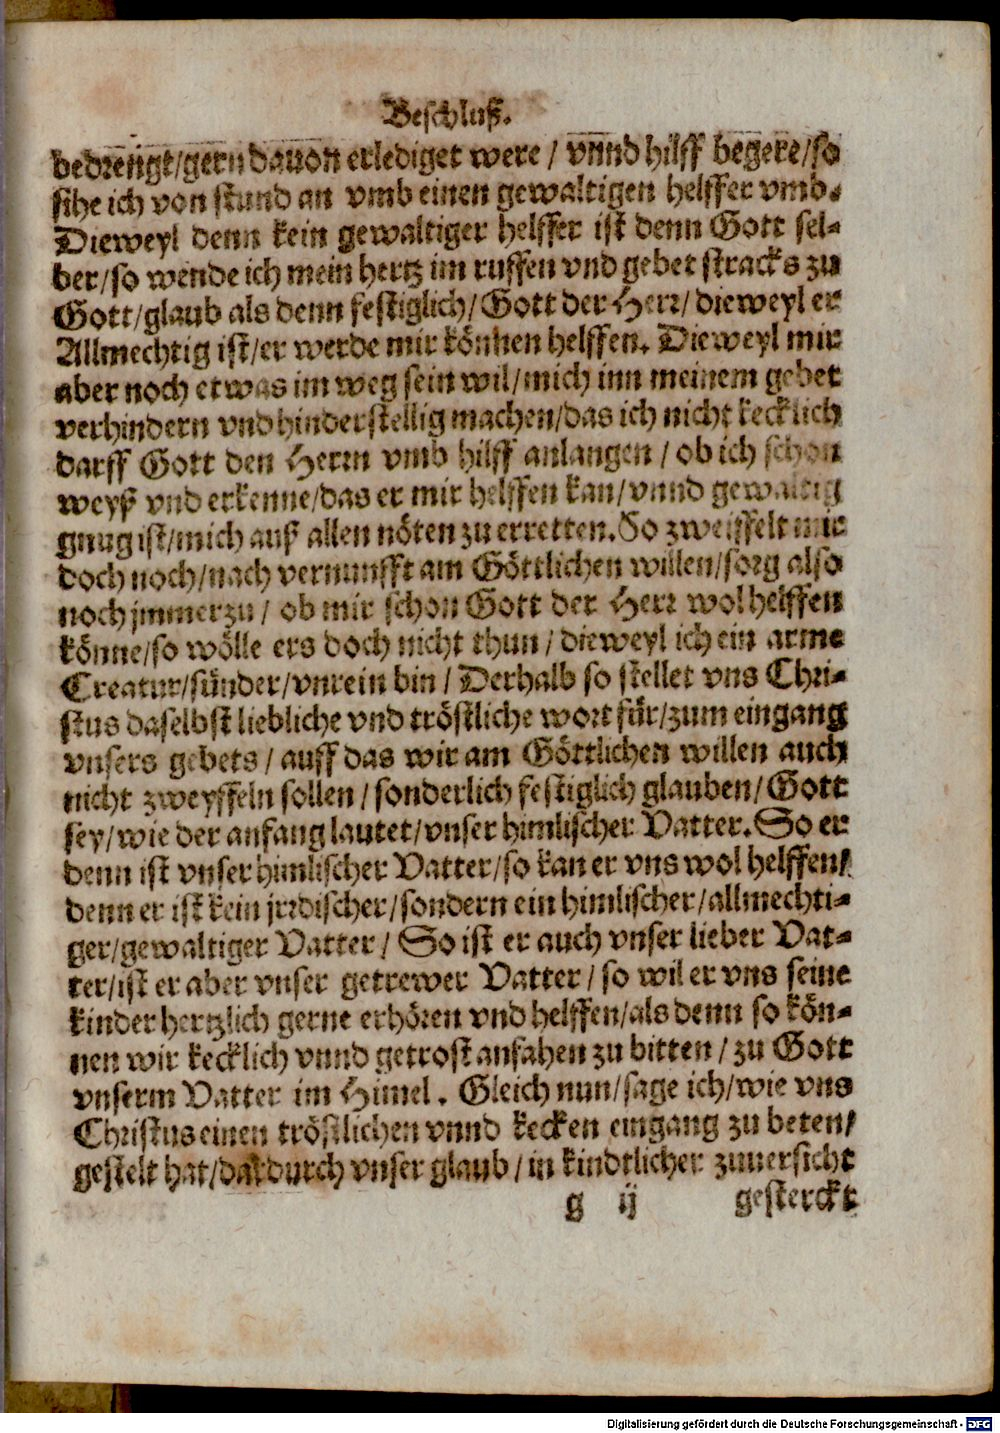 Beschluß.
bedrengt/gern dauon erlediget were / vnnd hilff begere/so
sihe ich von stund an vmb einen gewaltigen helffer vmb.
Dieweyl denn kein gewaltiger helffer ist denn Gott sel-
ber/so wende ich mein hertz im ruffen vnd gebet stracks zu
Gott/glaub als denn festiglich/Gott der Herr/dieweyl er
Allmechtig ist/er werde mir können helffen. Dieweyl mir
aber noch etwas im weg sein wil/mich inn meinem gebet
verhindern vnd hinderstellig machen/das ich nicht kecklich
darff Gott den Herrn vmb hilff anlangen / ob ich schon
weyß vnd erkenne/das er mir helffen kan/vnnd gewaltig
gnug ist/mich auß allen nöten zu erretten. So zweiffelt mir
doch noch/nach vernunfft am Göttlichen willen/sorg also
noch jmmerzu / ob mir schon Gott der Herr wol helffen
könne/so wölle ers doch nicht thun / dieweyl ich ein arme
Creatur/sünder/vnrein bin / Derhalb so stellet vns Chri-
stus daselbst liebliche vnd tröstliche wort für/zum eingang
vnsers gebets / auff das wir am Göttlichen willen auch
nicht zweyffeln sollen / sonderlich festiglich glauben/Gott
sey/wie der anfang lautet/vnser himlischer Vatter. So er
denn ist vnser himlischer Vatter/so kan er vns wol helffen/
denn er ist kein jrrdischer/sondern ein himlischer/allmechti-
ger/gewaltiger Vatter / So ist er auch vnser lieber Vat-
ter/ist er aber vnser getrewer Vatter / so wil er vns seine
kinder hertzlich gerne erhören vnd helffen/als denn so kön-
nen wir kecklich vnnd getrost anfahen zu bitten / zu Gott
vnserm Vatter im Himel. Gleich nun/sage ich/wie vns
Christus einen tröstlichen vnnd kecken eingang zu beten/
gestelt hat/dardurch vnser glaub / in kindtlicher zuuersicht
g ij gesterckt
Digitalisierung gefördert durch die Deutsche Forschungsgemeinschaft - DFG